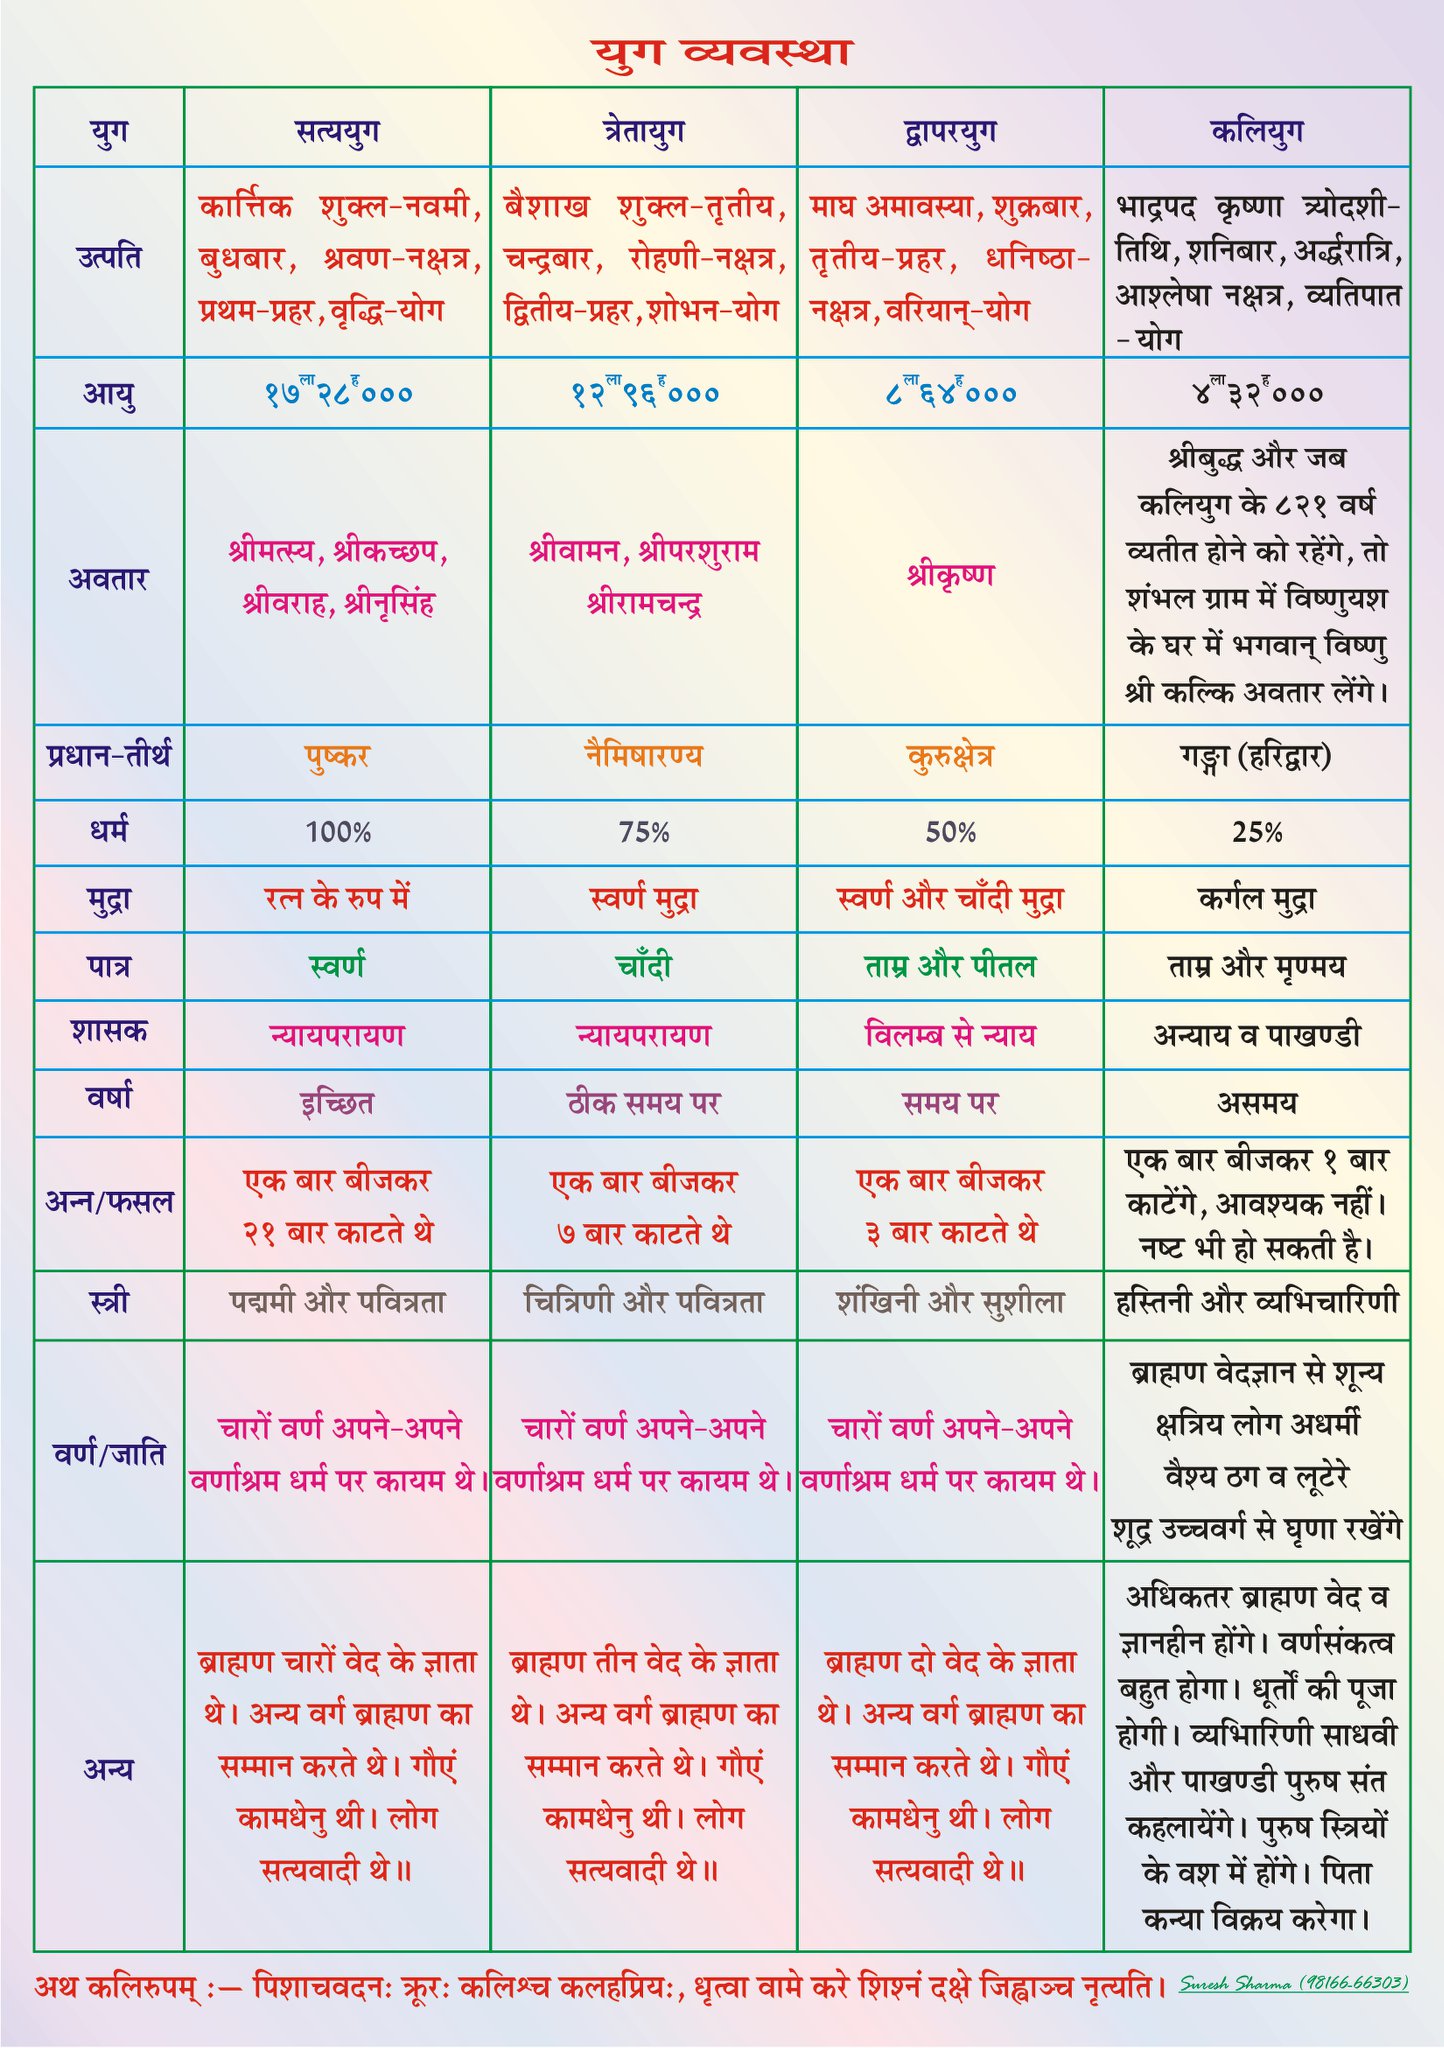 युग व्यवस्था
युग
सत्ययुग
त्रेतायुग
द्वापरयुग
कलियुग
उत्पति
कार्त्तिक शुक्ल-नवमी,
बुधबार, श्रवण-नक्षत्र,
प्रथम-प्रहर, वृद्धि-योग
बैशाख शुक्ल-तृतीय,
चन्द्रबार, रोहणी-नक्षत्र,
द्वितीय-प्रहर, शोभन-योग
माघ अमावस्या, शुक्रबार,
तृतीय-प्रहर, धनिष्ठा-
नक्षत्र, वरियान्-योग
भाद्रपद कृष्णा त्र्योदशी-
तिथि, शनिबार, अर्द्धरात्रि,
आश्लेषा नक्षत्र, व्यतिपात
- योग
आयु
१७ला२८ह०००
१२ला९६ह०००
८ला६४ह०००
४ला३२ह०००
अवतार
श्रीमत्स्य, श्रीकच्छप,
श्रीवराह, श्रीनृसिंह
श्रीवामन, श्रीपरशुराम
श्रीरामचन्द्र
श्रीकृष्ण
श्रीबुद्ध और जब
कलियुग के ८२१ वर्ष
व्यतीत होने को रहेंगे, तो
शंभल ग्राम में विष्णुयश
के घर में भगवान् विष्णु
श्री कल्कि अवतार लेंगे।
प्रधान-तीर्थ
पुष्कर
नैमिषारण्य
कुरुक्षेत्र
गङ्गा (हरिद्वार)
धर्म
100%
75%
50%
25%
मुद्रा
रत्न के रुप में
स्वर्ण मुद्रा
स्वर्ण और चाँदी मुद्रा
कर्गल मुद्रा
पात्र
स्वर्ण
चाँदी
ताम्र और पीतल
ताम्र और मृण्मय
शासक
न्यायपरायण
न्यायपरायण
विलम्ब से न्याय
अन्याय व पाखण्डी
वर्षा
इच्छित
ठीक समय पर
समय पर
असमय
अन्न/फसल
एक बार बीजकर
२१ बार काटते थे
एक बार बीजकर
७ बार काटते थे
एक बार बीजकर
३ बार काटते थे
एक बार बीजकर १ बार
काटेंगे, आवश्यक नहीं।
नष्ट भी हो सकती है।
स्त्री
पद्ममी और पवित्रता
चित्रिणी और पवित्रता
शंखिनी और सुशीला
हस्तिनी और व्यभिचारिणी
वर्ण/जाति
चारों वर्ण अपने-अपने
वर्णाश्रम धर्म पर कायम थे।
चारों वर्ण अपने-अपने
वर्णाश्रम धर्म पर कायम थे।
चारों वर्ण अपने-अपने
वर्णाश्रम धर्म पर कायम थे।
ब्राह्मण वेदज्ञान से शून्य
क्षत्रिय लोग अधर्मी
वैश्य ठग व लूटेरे
शूद्र उच्चवर्ग से घृणा रखेंगे
अन्य
ब्राह्मण चारों वेद के ज्ञाता
थे। अन्य वर्ग ब्राह्मण का
सम्मान करते थे। गौएं
कामधेनु थी। लोग
सत्यवादी थे॥
ब्राह्मण तीन वेद के ज्ञाता
थे। अन्य वर्ग ब्राह्मण का
सम्मान करते थे। गौएं
कामधेनु थी। लोग
सत्यवादी थे॥
ब्राह्मण दो वेद के ज्ञाता
थे। अन्य वर्ग ब्राह्मण का
सम्मान करते थे। गौएं
कामधेनु थी। लोग
सत्यवादी थे॥
अधिकतर ब्राह्मण वेद व
ज्ञानहीन होंगे। वर्णसंकत्व
बहुत होगा। धूर्तों की पूजा
होगी। व्यभिारिणी साधवी
और पाखण्डी पुरुष संत
कहलायेंगे। पुरुष स्त्रियों
के वश में होंगे। पिता
कन्या विक्रय करेगा।
अथ कलिरुपम् :— पिशाचवदनः क्रूरः कलिश्च कलहप्रियः, धृत्वा वामे करे शिश्नं दक्षे जिह्वाञ्च नृत्यति।
Suresh Sharma (98166-66303)